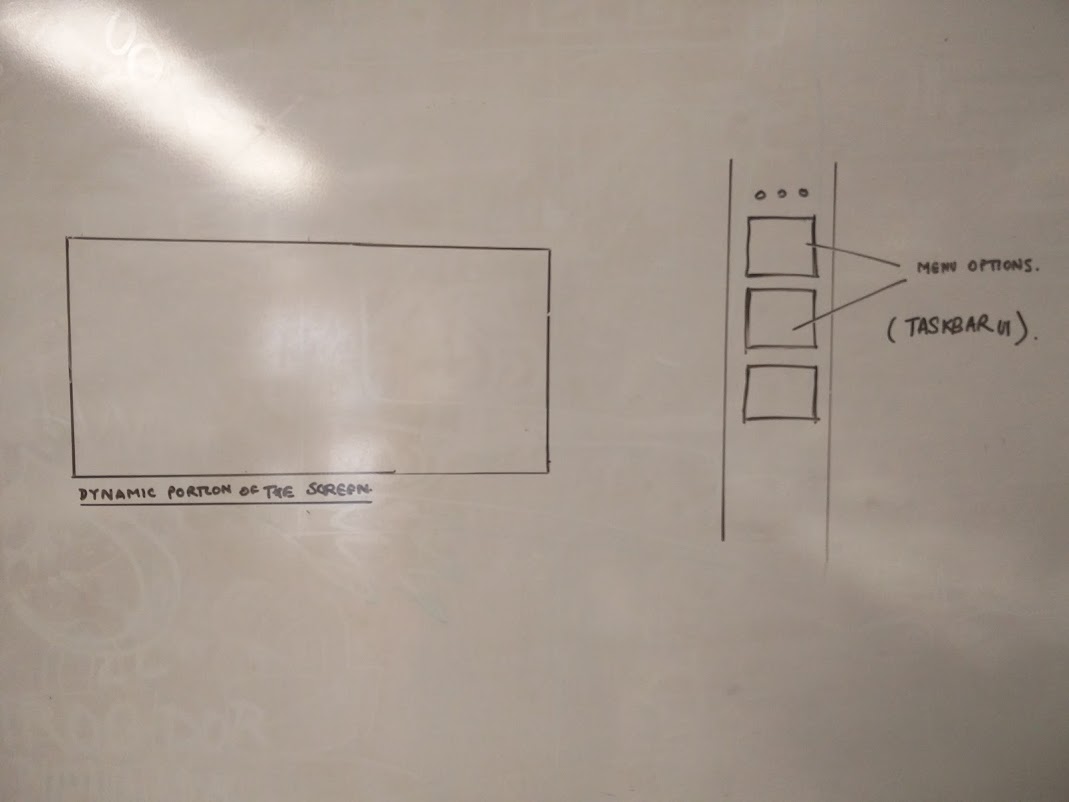 DYNAMIC PORTION OF THE SCREEN.
MENU OPTIONS.
(TASKBAR UI).